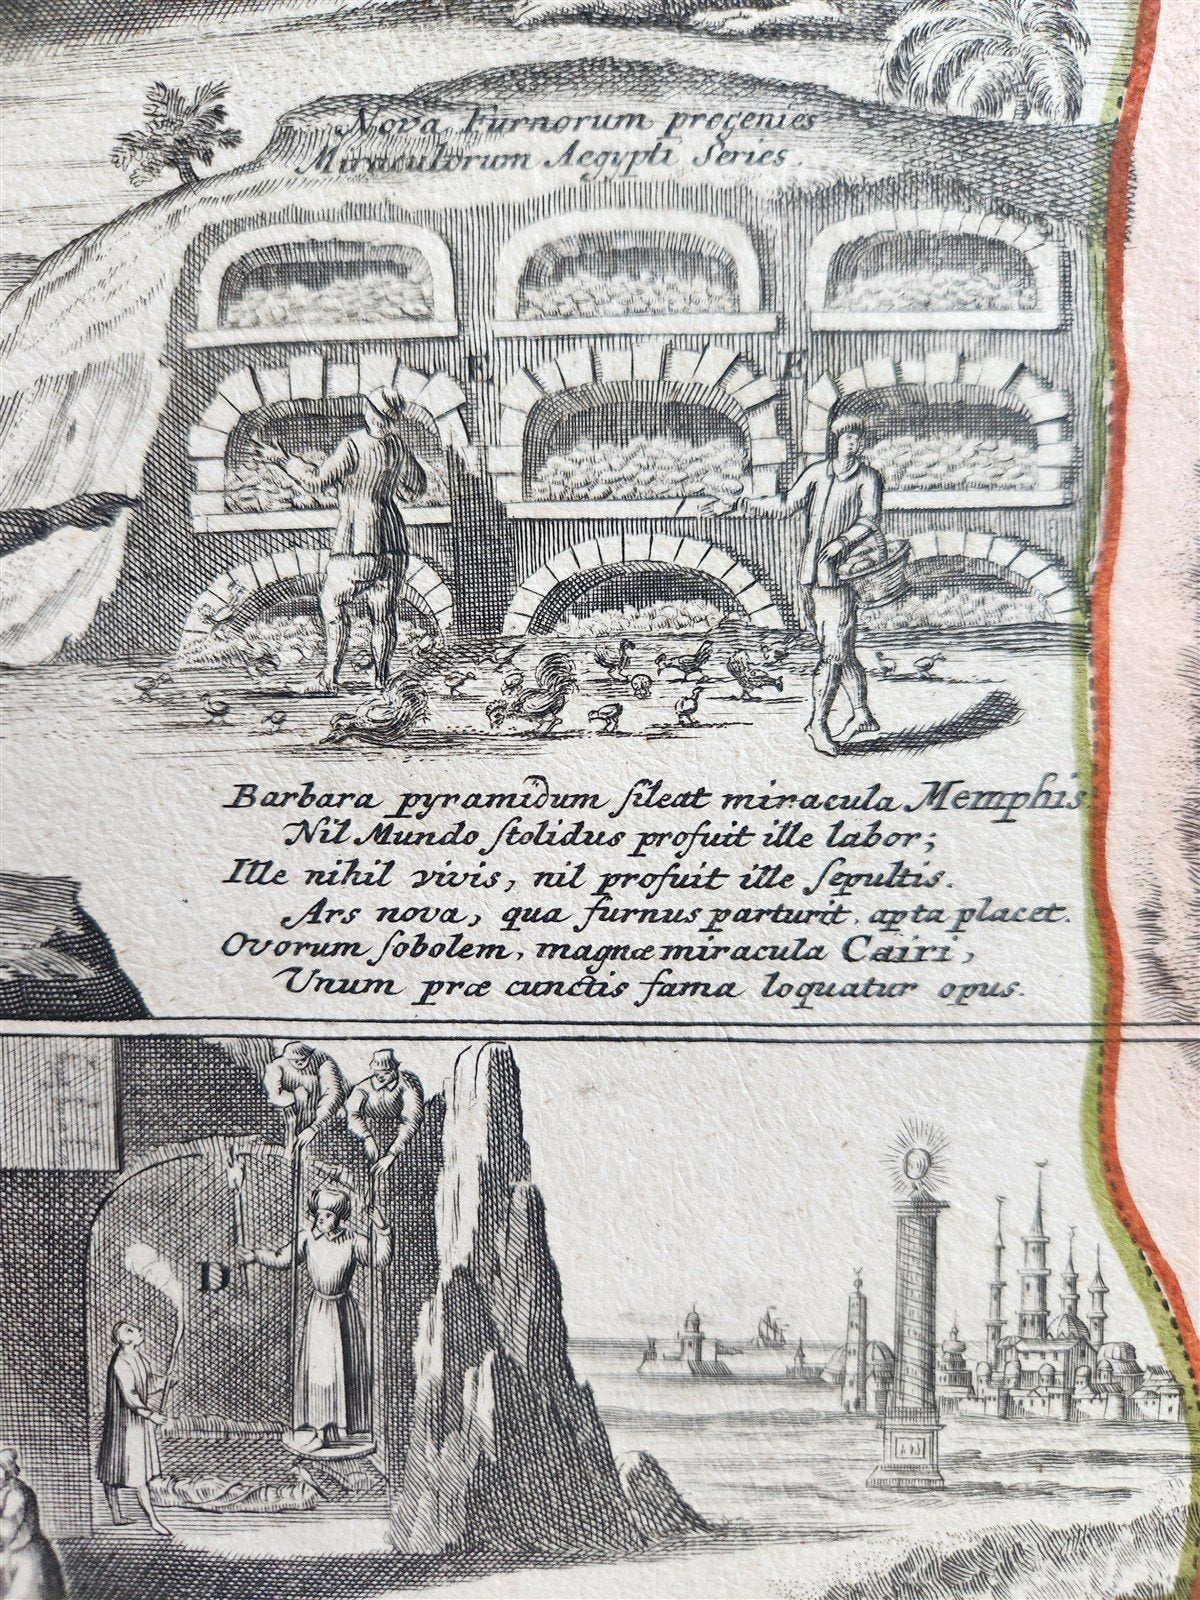 Nova Furnorum progenies
Miraculorum Aegypti Series.
E E
Barbara pyramidum sileat miracula Memphis
Nil Mundo stolidus profuit ille labor;
Ille nihil vivis, nil profuit ille sepultis.
Ars nova, qua furnus parturit, apta placet.
Ovorum sobolem, magnæ miracula Cairi,
Unum præ cunctis fama loquatur opus.
D